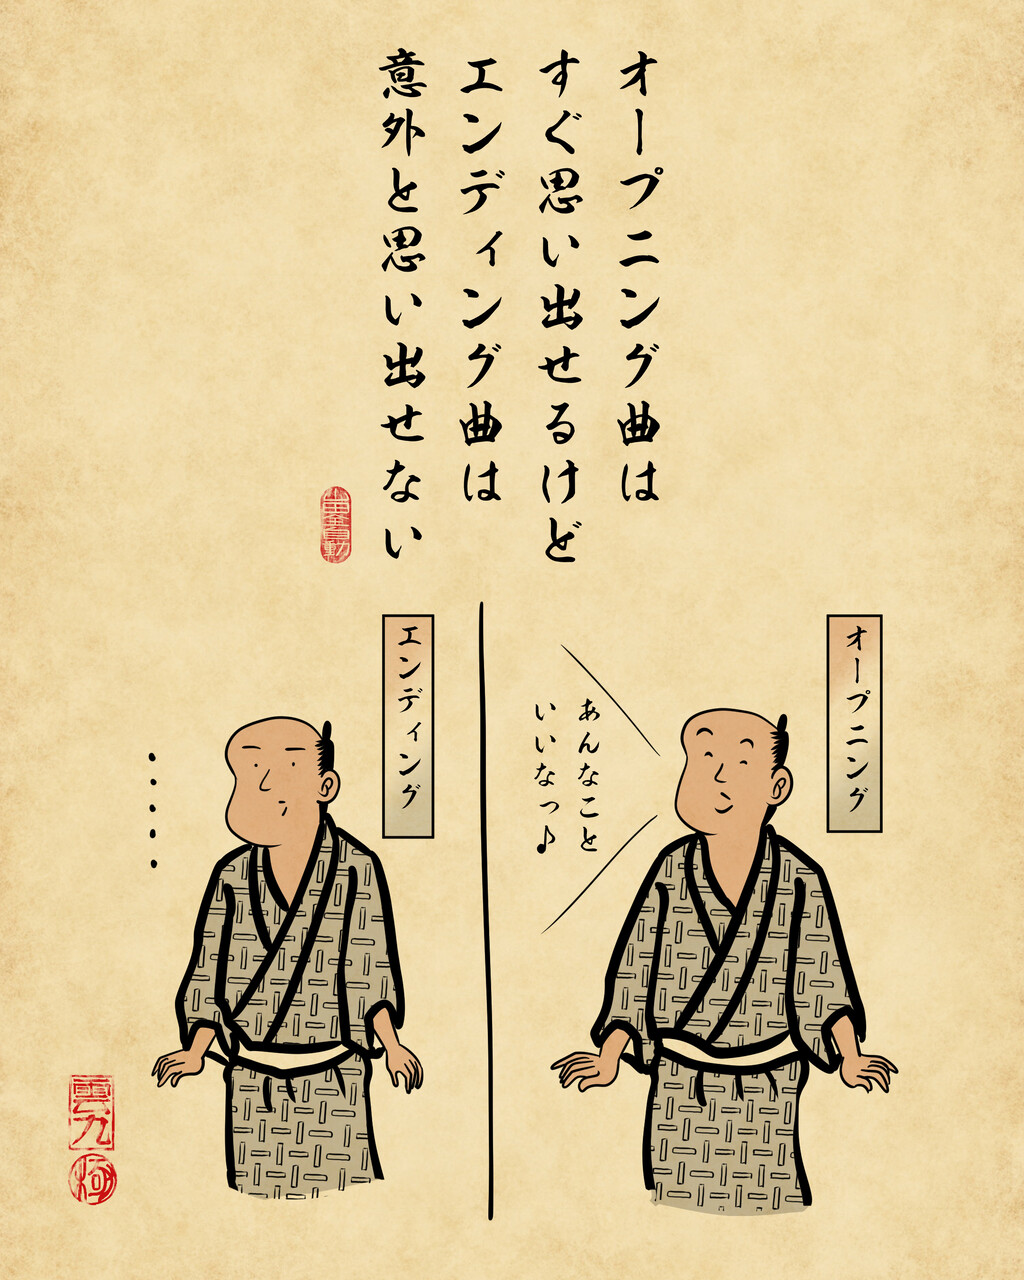 オープニング曲は
すぐ思い出せるけど
エンディング曲は
意外と思い出せない
オープニング
あんなこと
いいなっ♪
エンディング
・・・・・